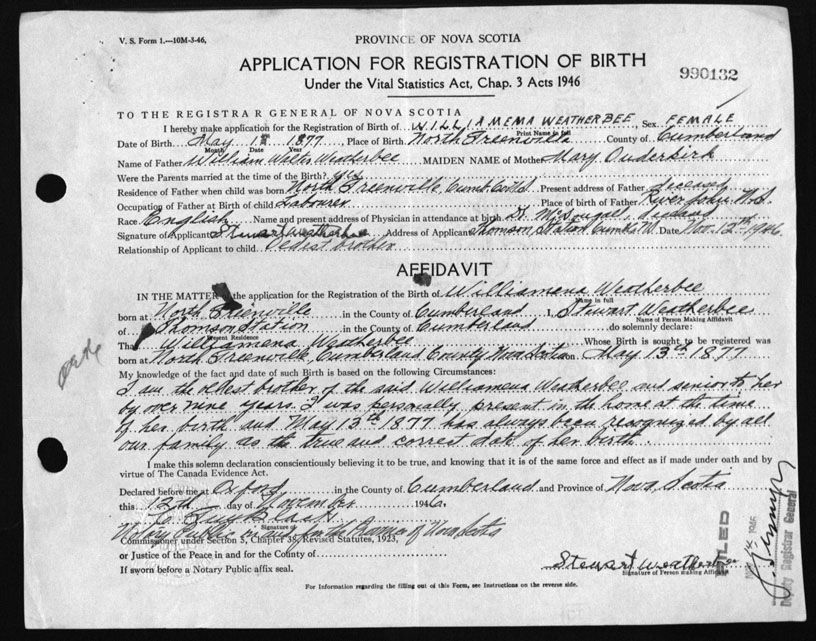 V. S. Form 1.—10M-3-46,
PROVINCE OF NOVA SCOTIA
APPLICATION FOR REGISTRATION OF BIRTH
Under the Vital Statistics Act, Chap. 3 Acts 1946
990132
TO THE REGISTRAR GENERAL OF NOVA SCOTIA
I hereby make application for the Registration of Birth of WILLIAMEMA WEATHERBEE, Sex FEMALE
Print Name in full
Date of Birth May 1877, Place of Birth North Greenville County of Cumberland
Month Date Year
Name of Father William Weatherbee MAIDEN NAME of Mother Mary Ouderkirk
Were the Parents married at the time of the Birth? Yes
Residence of Father when child was born North Greenville, Cumb. Co. N.S. Present address of Father
Occupation of Father at Birth of child Labourer Place of birth of Father River John N.S.
Race English Name and present address of Physician in attendance at birth Dr. McDougal,
Signature of Applicant Stewart Weatherbee Address of Applicant Thomson Station Cumb. Date Nov. 12th 1946.
Relationship of Applicant to child Oldest brother
AFFIDAVIT
IN THE MATTER of the application for the Registration of Birth of Williamena Weatherbee
Name in full
born at North Greenville in the County of Cumberland I, Stewart Weatherbee
Name of Person Making Affidavit
of Thomson Station in the County of Cumberland do solemnly declare:
Present Residence
That Williamena Weatherbee Whose Birth is sought to be registered was
born at North Greenville, Cumberland County Nova Scotia on May 13th 1877
My knowledge of the fact and date of such Birth is based on the following Circumstances:
I am the oldest brother of the said Williamena Weatherbee and senior to her
by over nine years. I was personally present in the home at the time
of her birth and May 13th 1877 has always been recognized by all
our family as the true and correct date of her birth.
I make this solemn declaration conscientiously believing it to be true, and knowing that it is of the same force and effect as if made under oath and by
virtue of The Canada Evidence Act.
Declared before me at Oxford in the County of Cumberland and Province of Nova Scotia
this 12th day of November 1946.
Signature of
Notary Public in and for the Province of Nova Scotia
Commissioner under Section 5, Chapter 38, Revised Statutes, 1923,
or Justice of the Peace in and for the County of
If sworn before a Notary Public affix seal.
Stewart Weatherbee
Signature of Person making Affidavit
For Information regarding the filling out of this Form, see Instructions on the reverse side.
FILED
1946
Deputy Registrar General